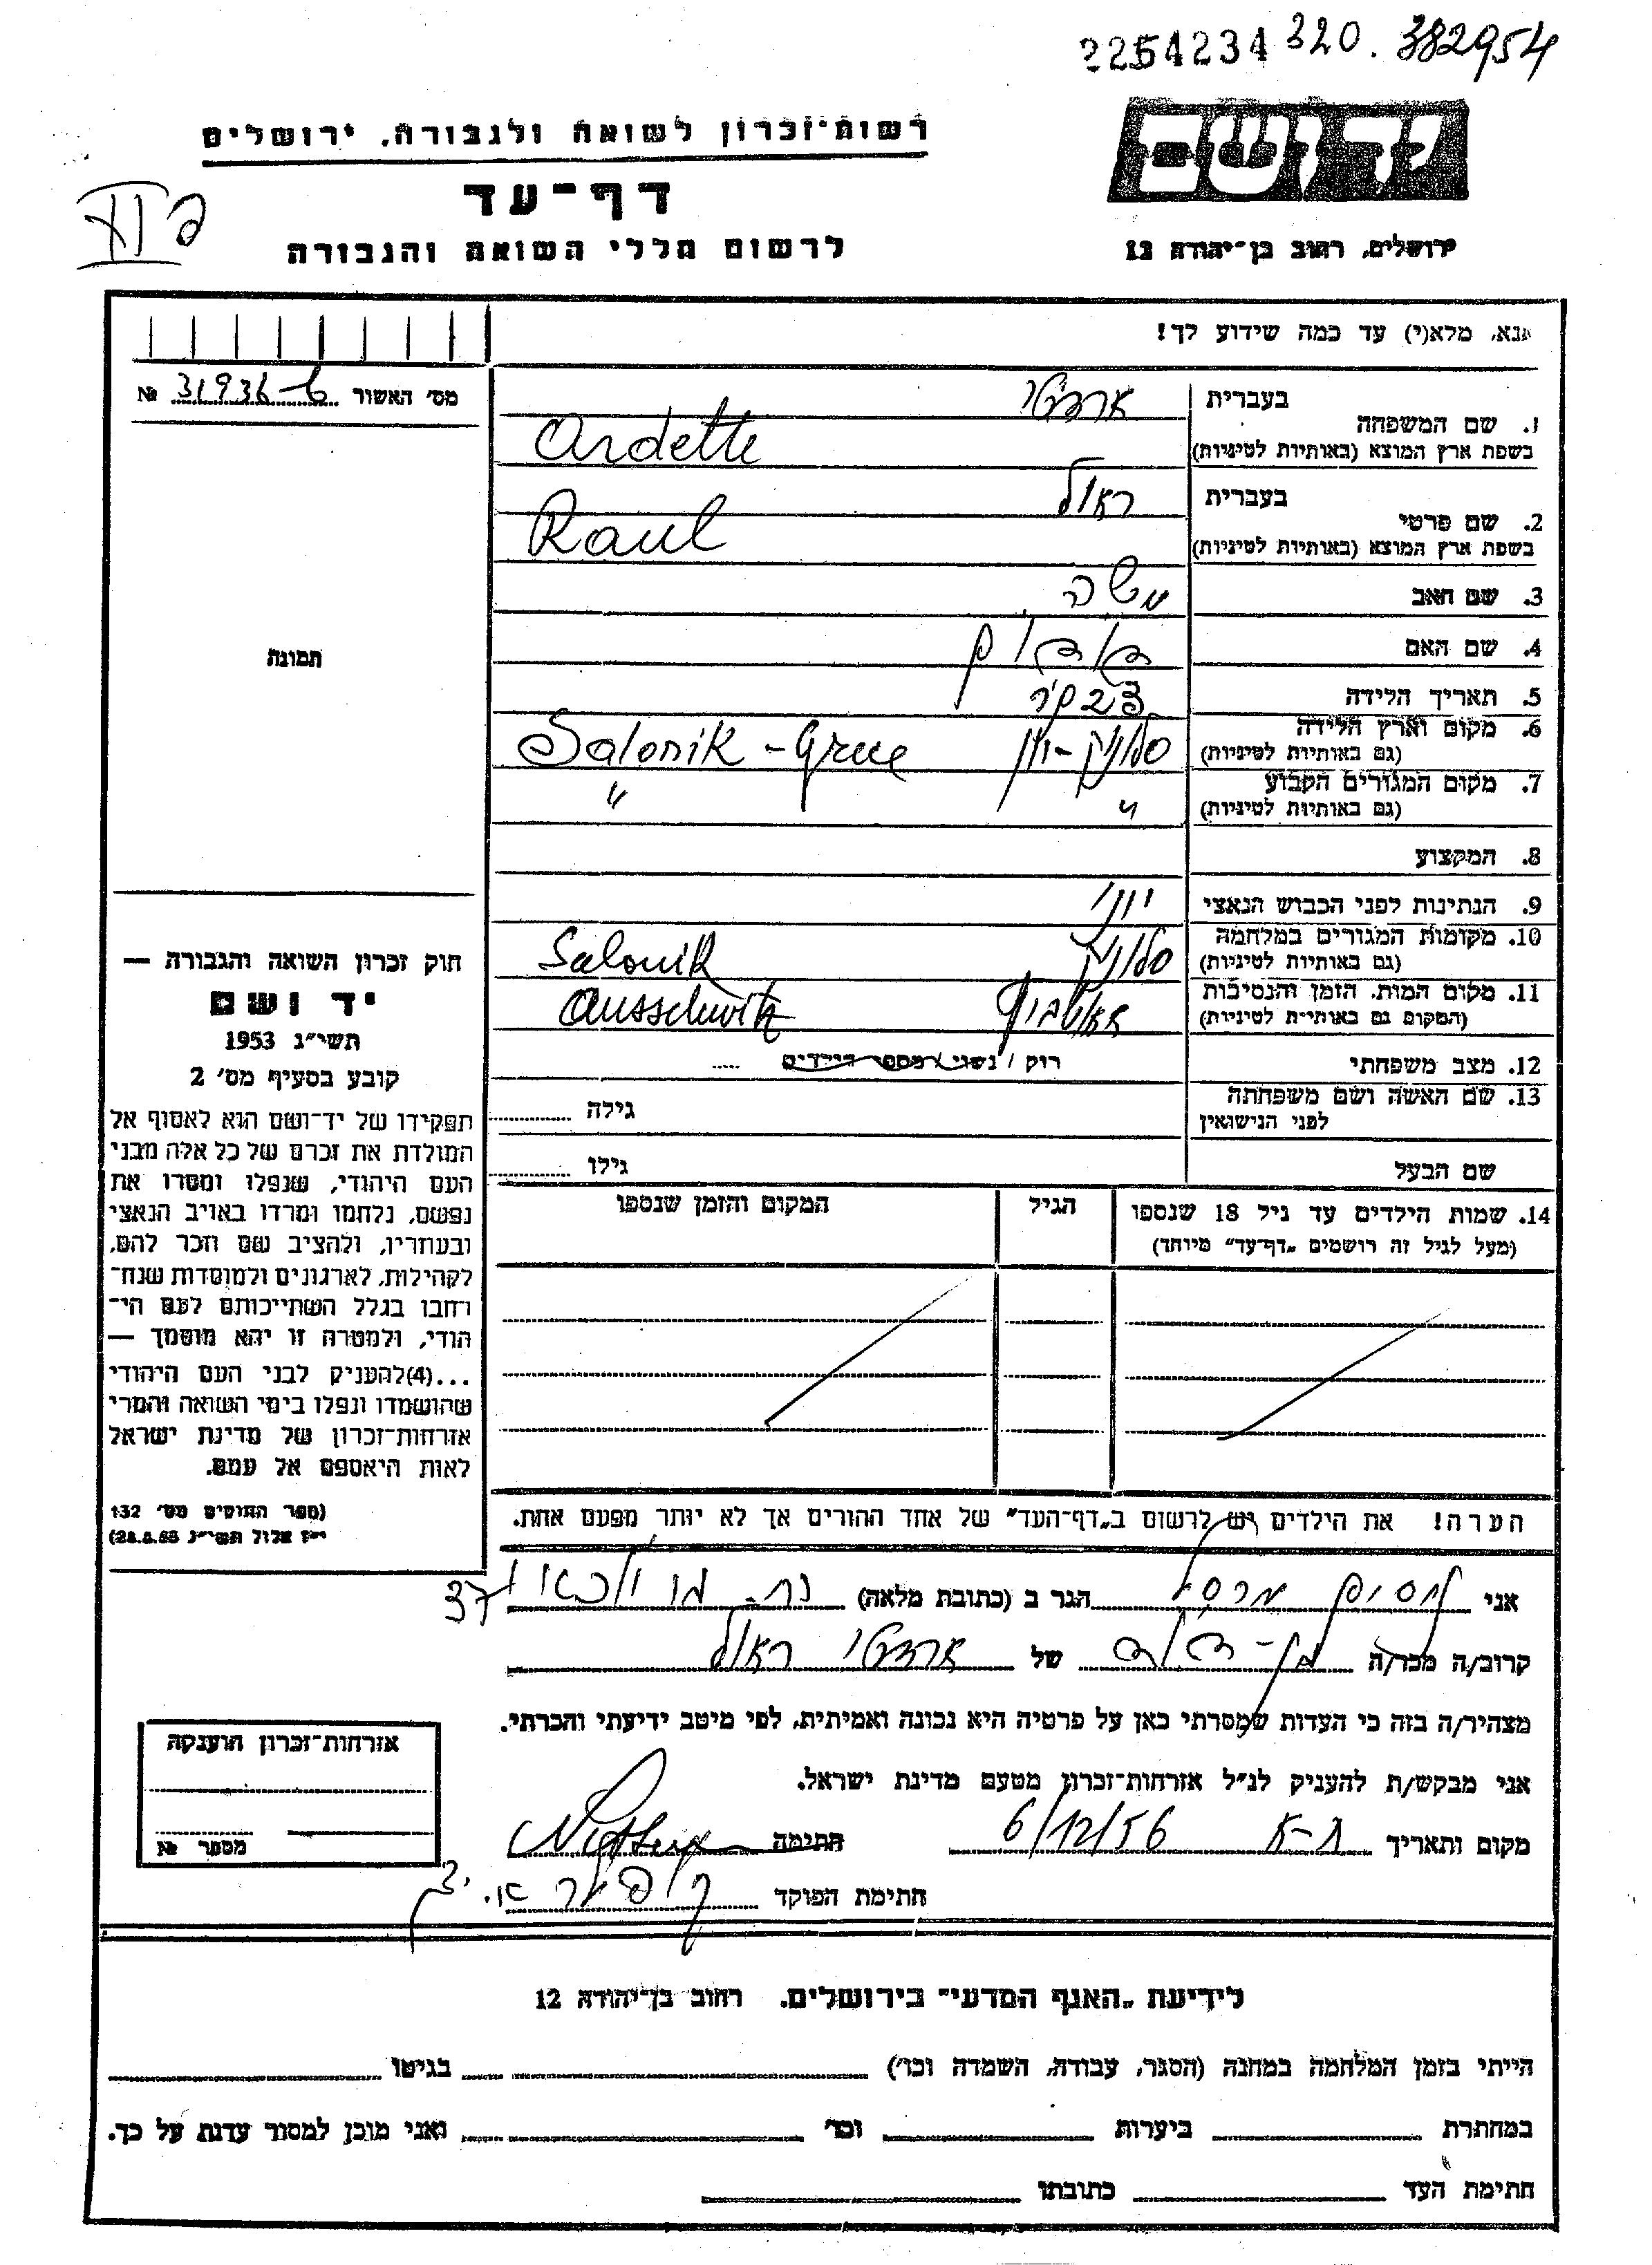 2254234 320. 382954
יד ושם
רשות־זכרון לשואה ולגבורה, ירושלים
דף־עד
לרשום חללי השואה והגבורה
ירושלים, רחוב בן־יהודה 12
אנא, מלא(י) עד כמה שידוע לך!
מס׳ האשור № 31936
בעברית ארדטי
1. שם המשפחה
בשפת ארץ המוצא (באותיות לטיניות) Ardette
בעברית ראול
2. שם פרטי
בשפת ארץ המוצא (באותיות לטיניות) Raul
3. שם האב משה
4. שם האם
תמונה
5. תאריך הלידה
6. מקום וארץ הלידה סלוניק - יון Salonik - Grece
(גם באותיות לטיניות)
7. מקום המגורים הקבוע " "
(גם באותיות לטיניות)
8. המקצוע
9. הנתינות לפני הכבוש הנאצי יוני
10. מקומות המגורים במלחמה סלוניק Salonik
(גם באותיות לטיניות)
11. מקום המות, הזמן והנסיבות אאושביץ Ausschwitz
(המקום גם באותיות לטיניות)
12. מצב משפחתי רוק / נשוי / מספר הילדים .....
13. שם האשה ושם משפחתה גילה
לפני הנישואין
שם הבעל גילו
14. שמות הילדים עד גיל 18 שנספו הגיל המקום והזמן שנספו
(מעל לגיל זה רושמים „דף־עד" מיוחד)
הערה! את הילדים יש לרשום ב„דף־העד" של אחד ההורים אך לא יותר מפעם אחת.
חוק זכרון השואה והגבורה —
יד ושם
תשי״ג 1953
קובע בסעיף מס׳ 2
תפקידו של יד־ושם הוא לאסוף אל
המולדת את זכרם של כל אלה מבני
העם היהודי, שנפלו ומסרו את
נפשם, נלחמו ומרדו באויב הנאצי
ובעוזריו, ולהציב שם וזכר להם,
לקהילות, לארגונים ולמוסדות שנח־
רבו בגלל השתייכותם לעם הי־
הודי, ולמטרה זו יהא מוסמך —
...(4)להעניק לבני העם היהודי
שהושמדו ונפלו בימי השואה והמרי
אזרחות־זכרון של מדינת ישראל
לאות היאספם אל עמם.
(ספר החוקים מס׳ 132
י״ז אלול תשי״ג 28.8.53)
אני נסים הגר ב (כתובת מלאה) 37
קרוב/ה מכר/ה בן-דוד של ארדטי ראול
מצהיר/ה בזה כי העדות שמסרתי כאן על פרטיה היא נכונה ואמיתית, לפי מיטב ידיעתי והכרתי.
אני מבקש/ת להעניק לנ״ל אזרחות־זכרון מטעם מדינת ישראל.
מקום ותאריך ת-א 6/12/56 חתימה
חתימת הפוקד
אזרחות־זכרון הוענקה
מספר №
לידיעת „האגף המדעי" בירושלים, רחוב בן־יהודה 12
הייתי בזמן המלחמה במחנה (הסגר, עבודה, השמדה וכו׳) בגיטו
במחתרת ביערות וכו׳ ואני מוכן למסור עדות על כך.
חתימת העד כתובתו